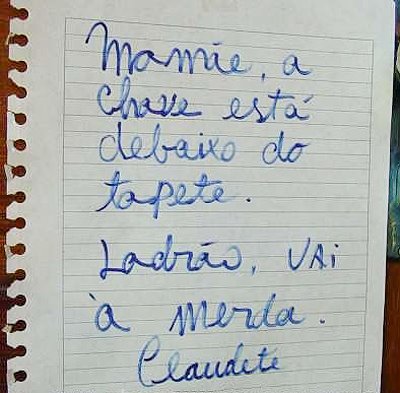 Mamãe, a
chave está
debaixo do
tapete.
Ladrão, VAi
à merda.
Claudete